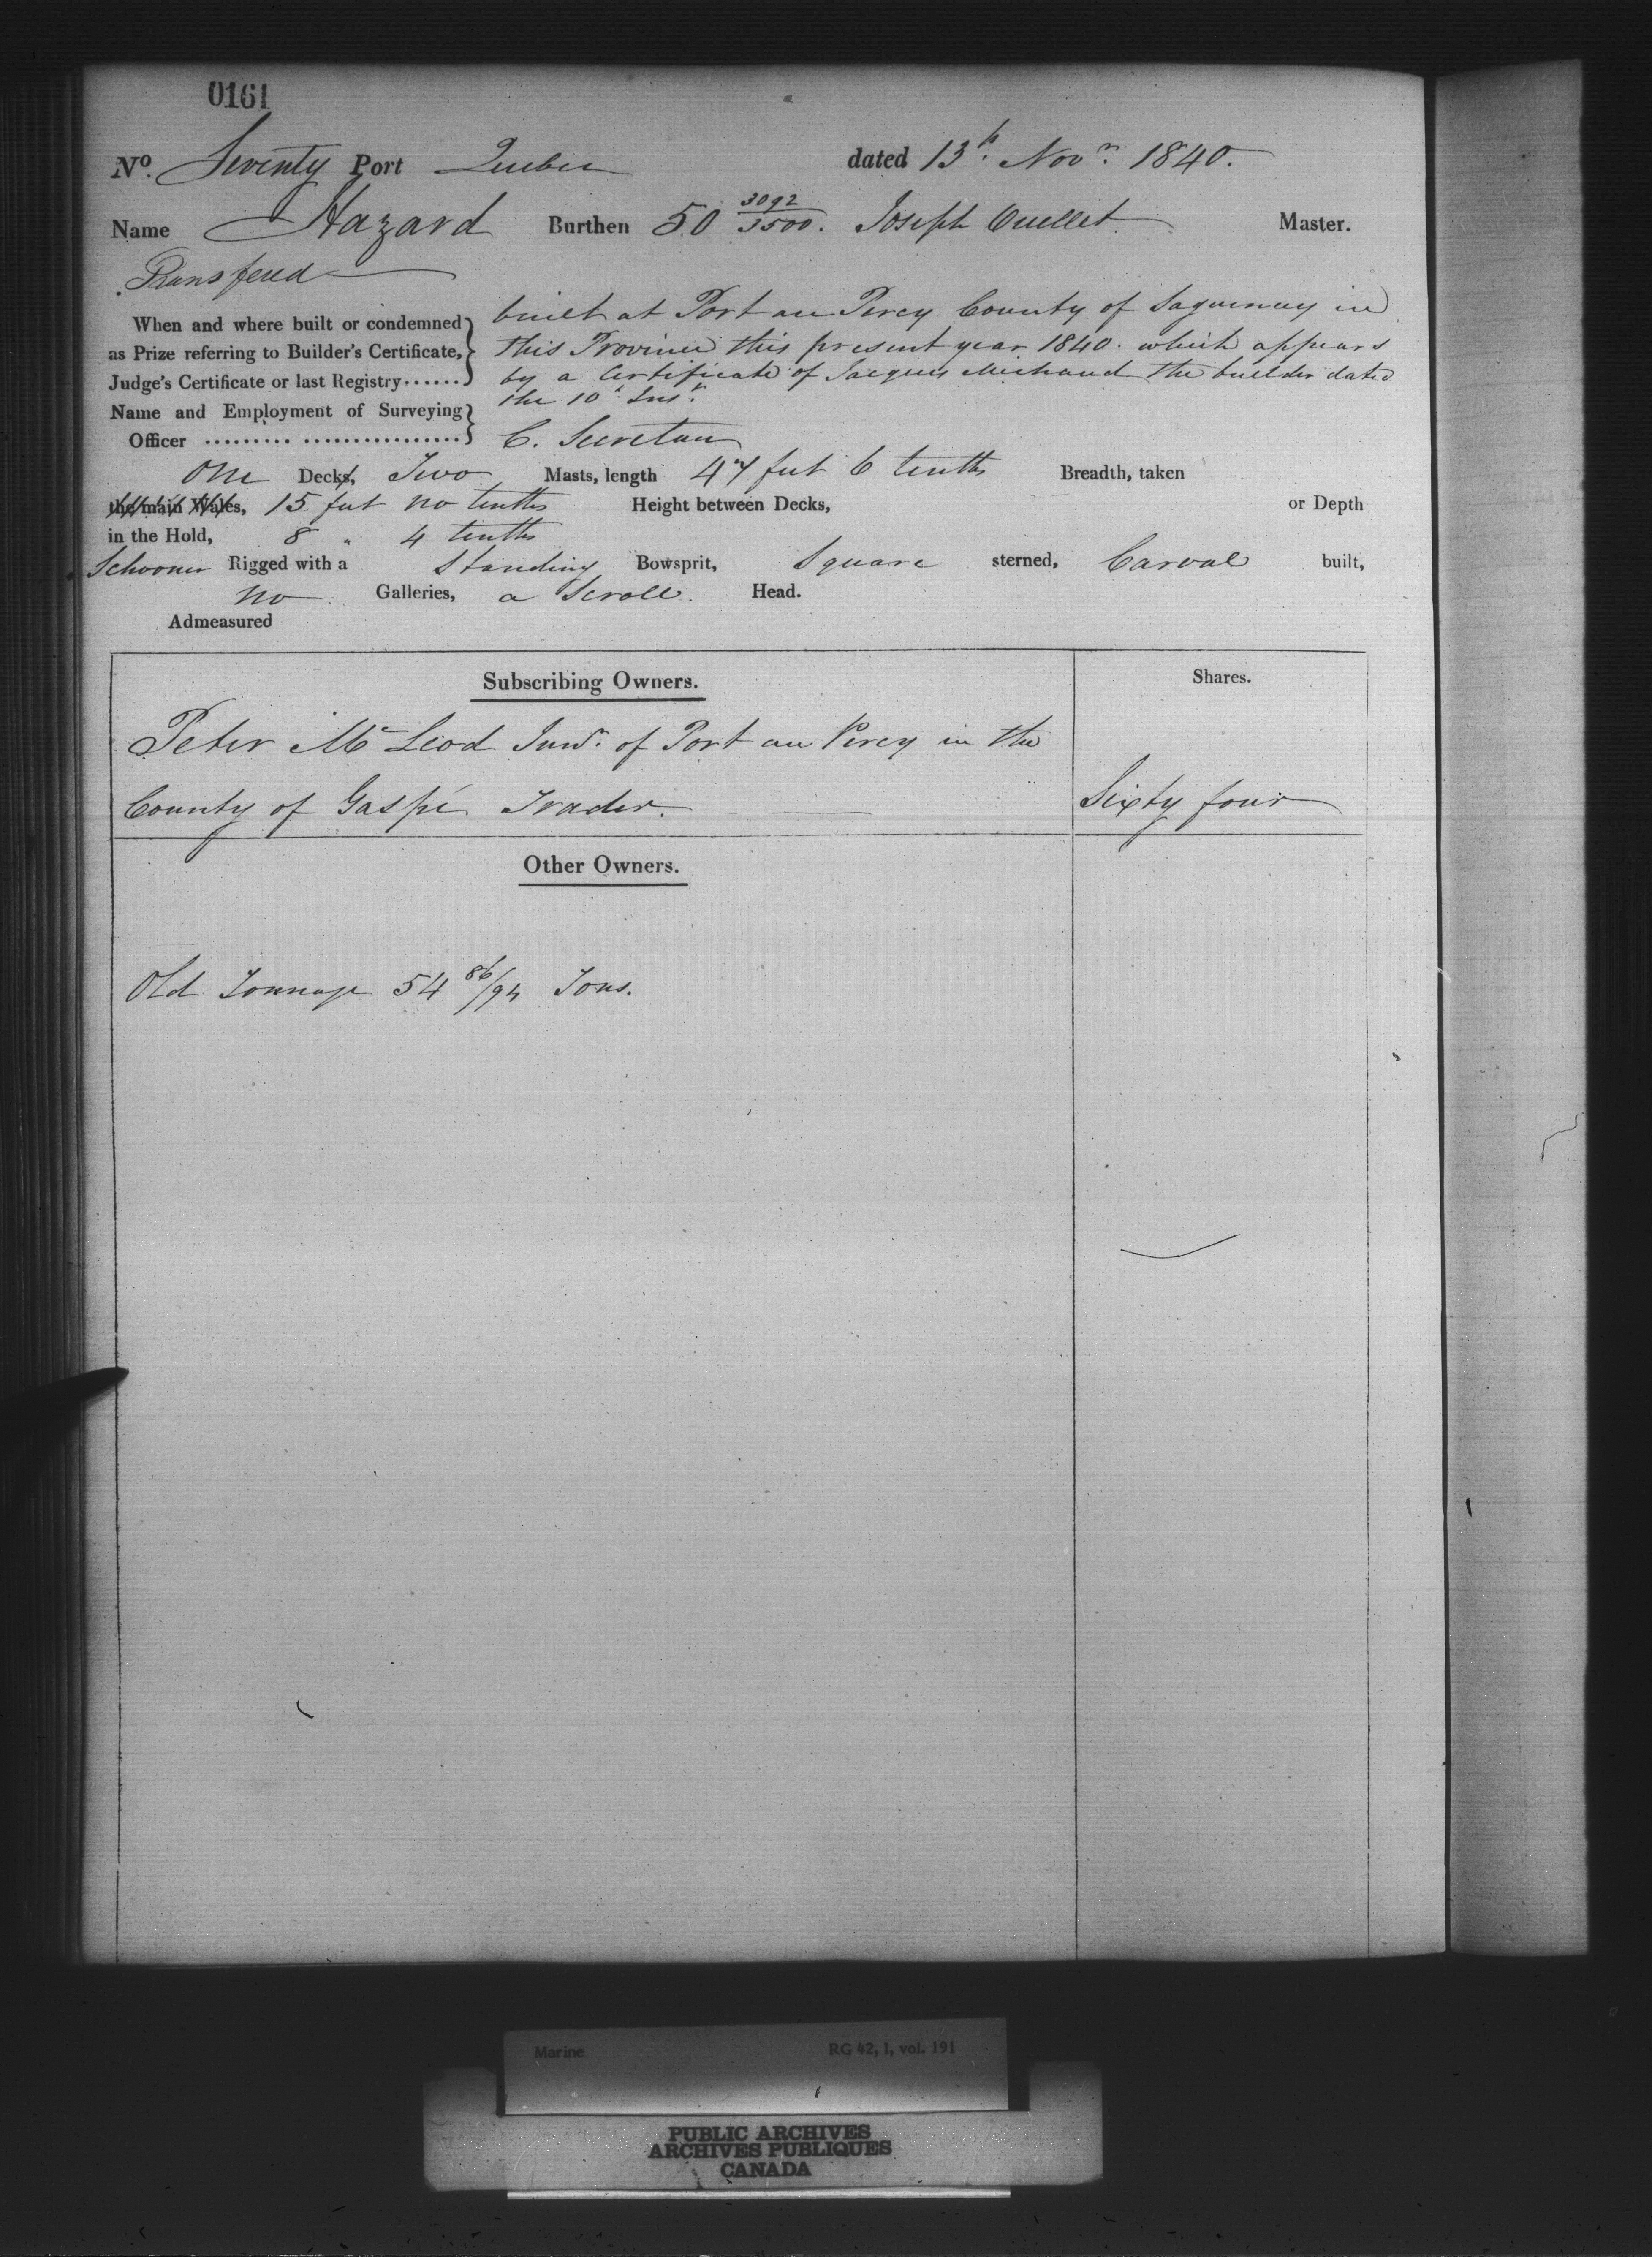 0161
No. Seventy Port Quebec dated 13th. Novr. 1840.
Name Hazard Burthen 50 3092/3500. Joseph Ouellet Master.
Transfered
When and where built or condemned built at Port au Percy County of Saguenay in
as Prize referring to Builder's Certificate, this Province this present year 1840. which appears
Judge's Certificate or last Registry...... by a Certificate of Jacques Michaud the builder dated
the 10th Inst.
Name and Employment of Surveying
Officer ......... ................ C. Secretan
One Decks, Two Masts, length 47 feet 6 tenths Breadth, taken
the main Wales, 15 feet no tenths Height between Decks, or Depth
in the Hold, 8 " 4 tenths
Schooner Rigged with a Standing Bowsprit, Square sterned, Carval built,
no Galleries, a Scroll Head.
Admeasured
Subscribing Owners. Shares.
Peter Mc Leod Junr. of Port au Percy in the
County of Gaspé Trader. Sixty four
Other Owners.
Old Tonnage 54 86/94 Tons.
Marine RG 42, I, vol. 191
PUBLIC ARCHIVES
ARCHIVES PUBLIQUES
CANADA